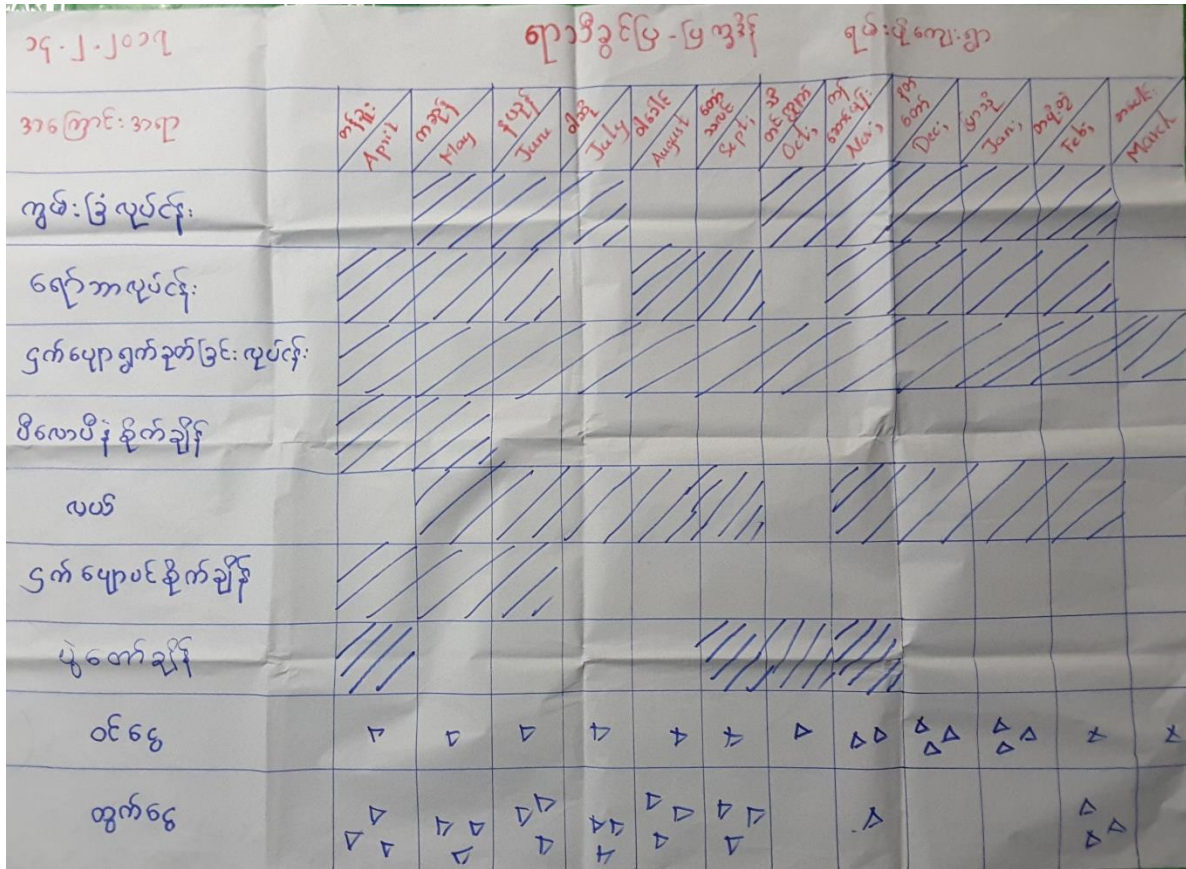 ၁၄.၂.၂၀၁၇ ရာသီခွင်ပြ-ပြက္ခဒိန် ရမ်းပိုကျေးရွာ
အကြောင်းအရာ တန်ခူး April ကဆုန် May နယုန် June ဝါဆို July ဝါခေါင် August တော်သလင်း Sept; သီတင်းကျွတ် Oct; တန်ဆောင်မုန်း Nov; နတ်တော် Dec; ပြာသို Jan; တပို့တွဲ Feb; တပေါင်း March
ကွမ်းခြံလုပ်ငန်း
ရော်ဘာလုပ်ငန်း
ငှက်ပျောရွက်ခုတ်ခြင်းလုပ်ငန်း
ပီလောပီနံစိုက်ချိန်
လယ်
ငှက်ပျောပင်စိုက်ချိန်
ပွဲတော်ချိန်
ဝင်ငွေ
ထွက်ငွေ